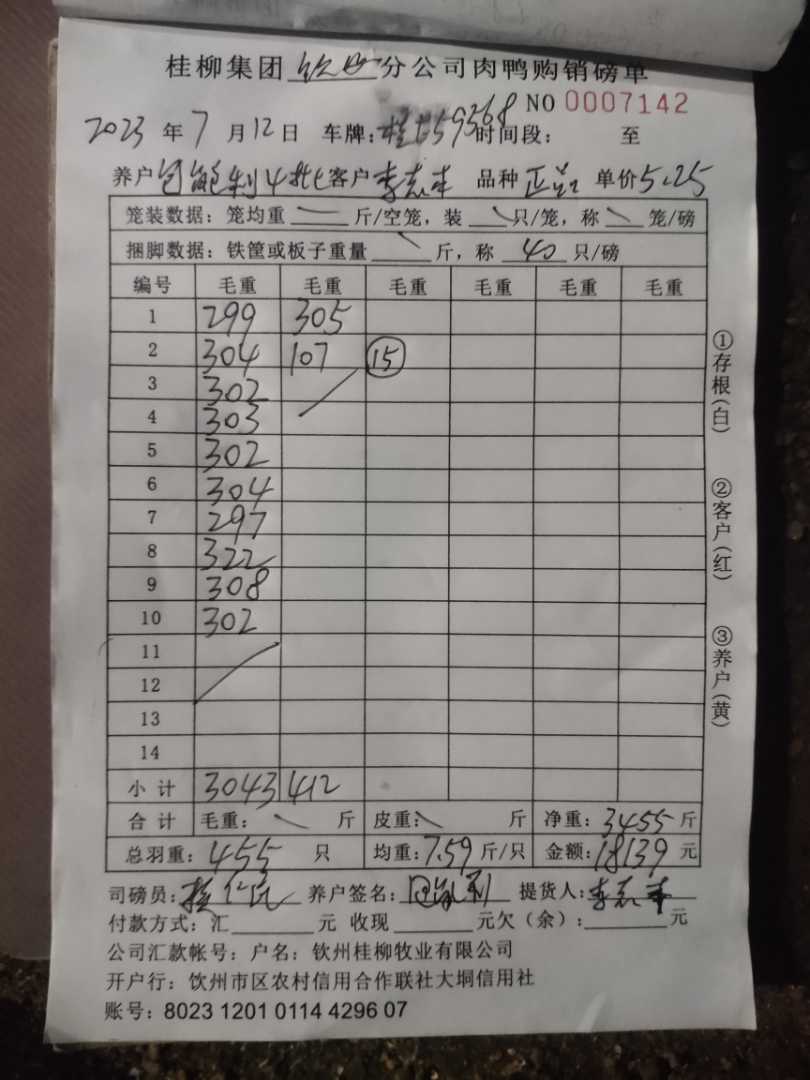 桂柳集团 钦州 分公司肉鸭购销磅单
NO 0007142
2023 年 7 月 12 日 车牌: 59368 时间段: 至
养户 4批 客户 李志丰 品种 正品 单价 5.25
笼装数据: 笼均重 斤/空笼, 装 只/笼, 称 笼/磅
捆脚数据: 铁筐或板子重量 斤, 称 40 只/磅
编号 毛重 毛重 毛重 毛重 毛重 毛重
1 299 305
2 304 107 15
3 302
4 303
5 302
6 304
7 297
8 322
9 308
10 302
11
12
13
14
小计 3043 412
合计 毛重: 斤 皮重: 斤 净重: 3455 斤
总羽重: 455 只 均重: 7.59 斤/只 金额: 18139 元
司磅员: 养户签名: 提货人: 李志丰
付款方式: 汇 元 收现 元欠(余): 元
公司汇款帐号: 户名: 钦州桂柳牧业有限公司
开户行: 钦州市区农村信用合作联社大垌信用社
账号: 8023 1201 0114 4296 07
①存根(白)
②客户(红)
③养户(黄)